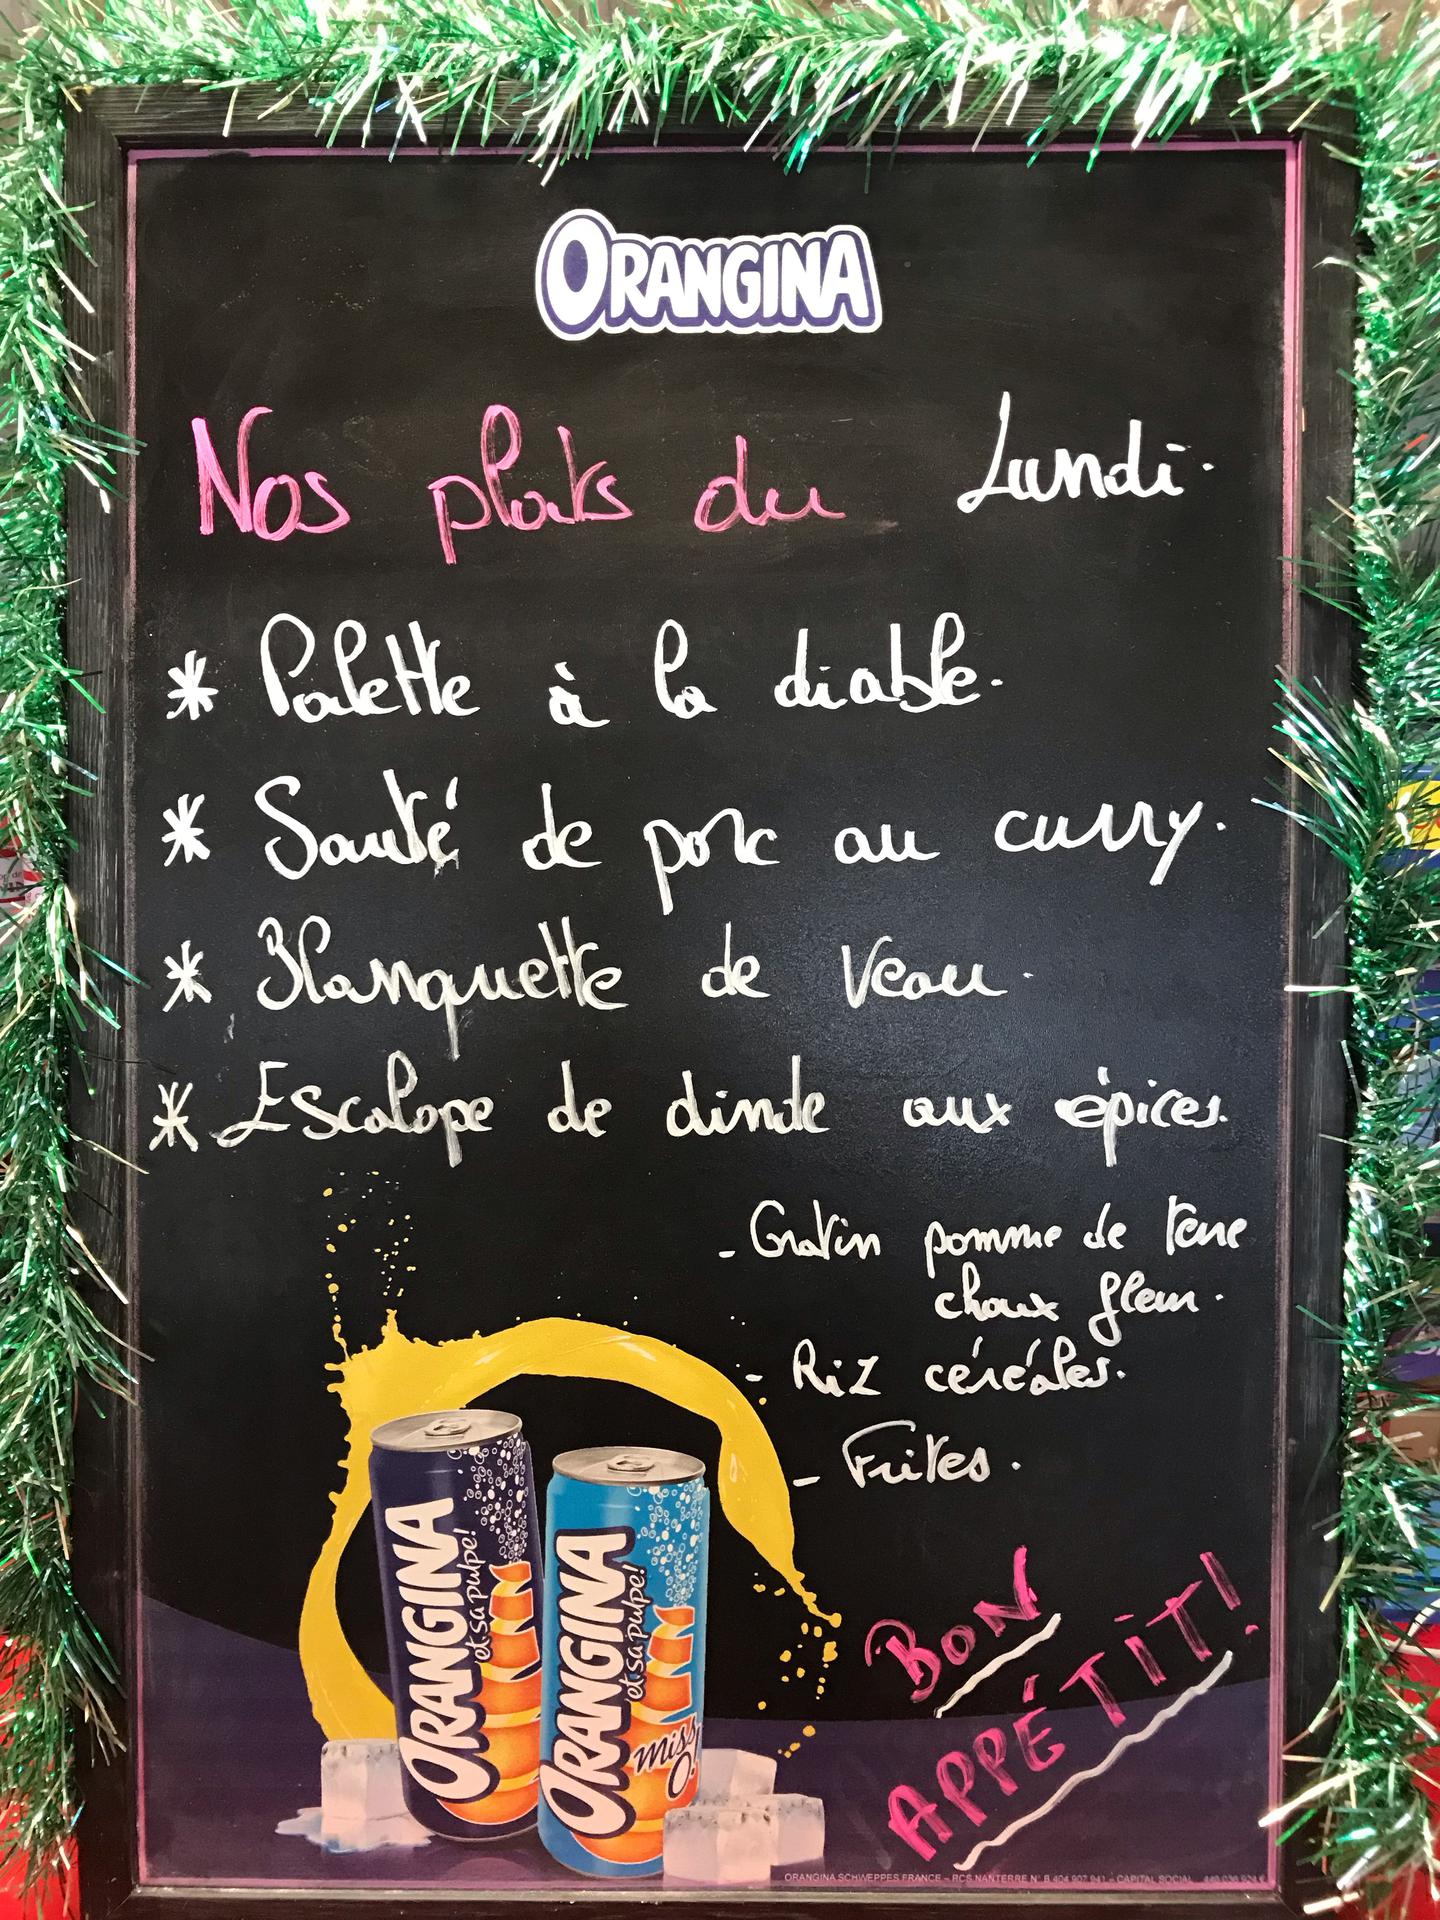 ORANGINA
Nos plats du Lundi.
* Palette à la diable.
* Sauté de porc au curry.
* Blanquette de Veau.
* Escalope de dinde aux épices.
- Gratin pomme de terre
choux fleur.
- Riz céréales.
- Frites.
BON
APPÉTIT!
ORANGINA
et sa pulpe!
ORANGINA
et sa pulpe!
miss
O!
ORANGINA SCHWEPPES FRANCE – RCS NANTERRE N° B 404 907 941 – CAPITAL SOCIAL